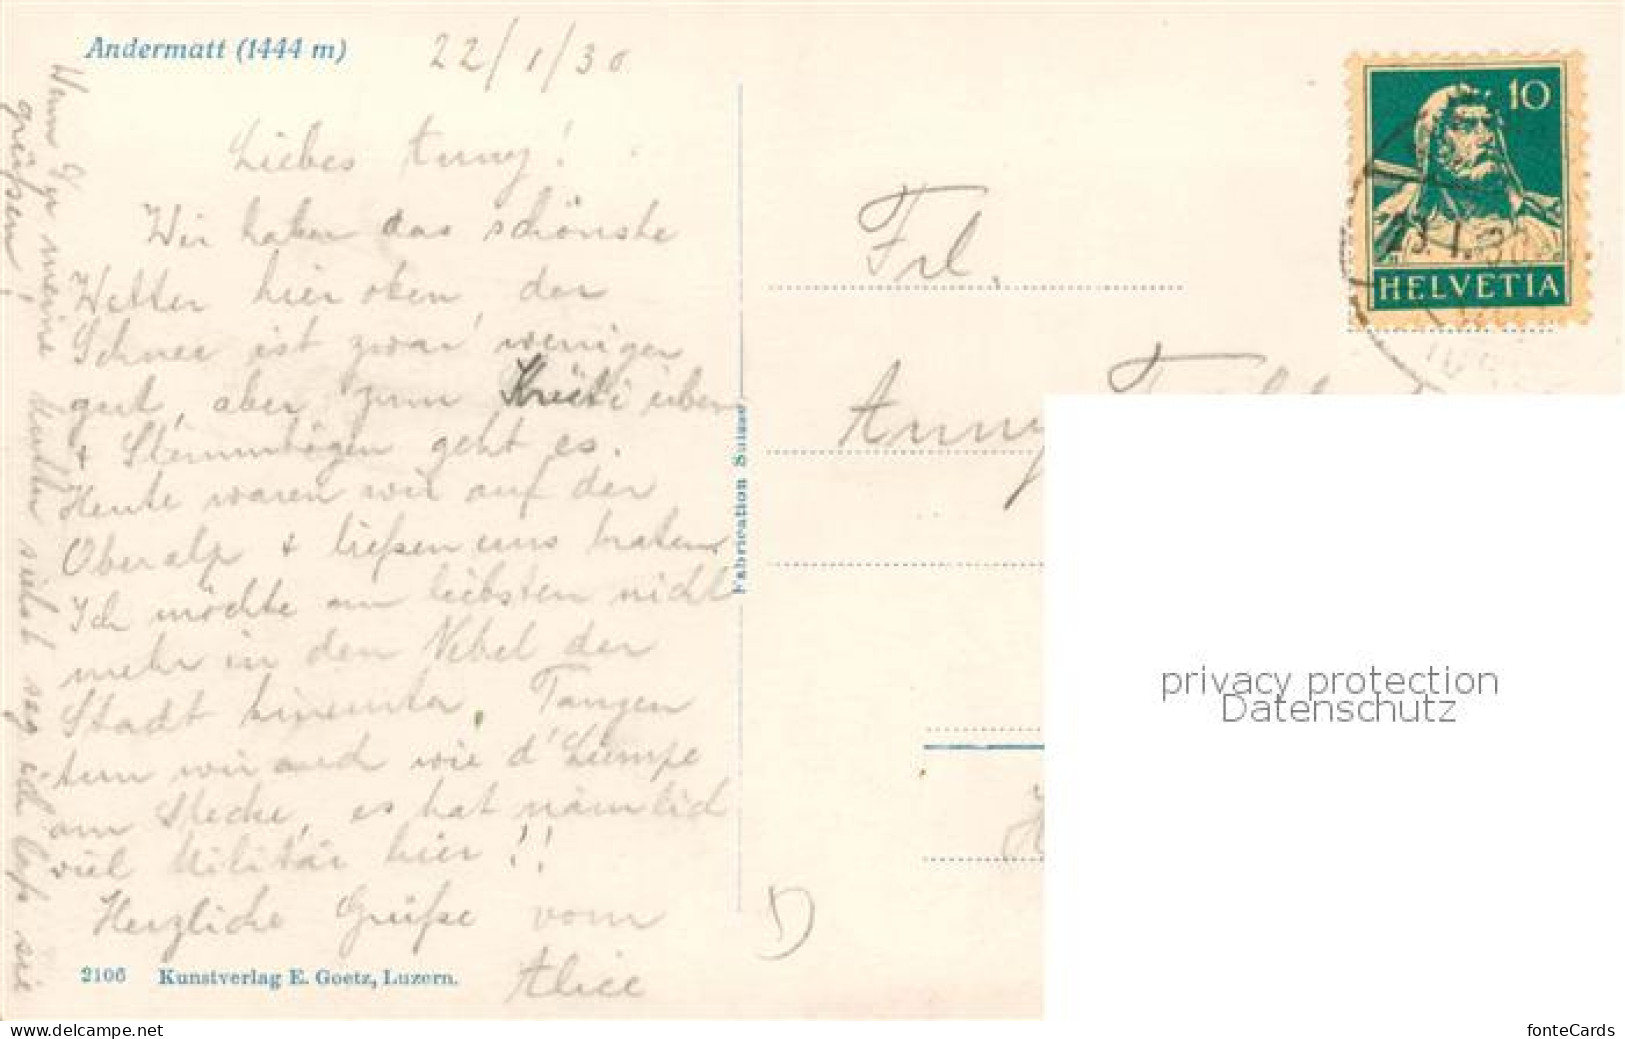 Andermatt (1444 m)
22/1/30
Liebes Anny!
Wir haben das schönste
Wetter hier oben, der
Schnee ist zwar weniger
gut, aber zum üben
+ Stemmbögen geht es.
Heute waren wir auf der
Oberalp + ließen uns braten.
Ich möchte am liebsten nicht
mehr in den Nebel der
Stadt hinunter. Tanzen
tun wir auch wie d'Lumpe
am Stecke, es hat nämlich
viel Militär hier!!
Herzliche Grüße vom
Alice
Wenn Du meine Mutter siehst sag ich laß sie
grüßen!
2106 Kunstverlag E. Goetz, Luzern.
Fabrication Suisse
10
HELVETIA
23.1.30
Frl.
Anny
privacy protection
Datenschutz
www.delcampe.net
fonteCards